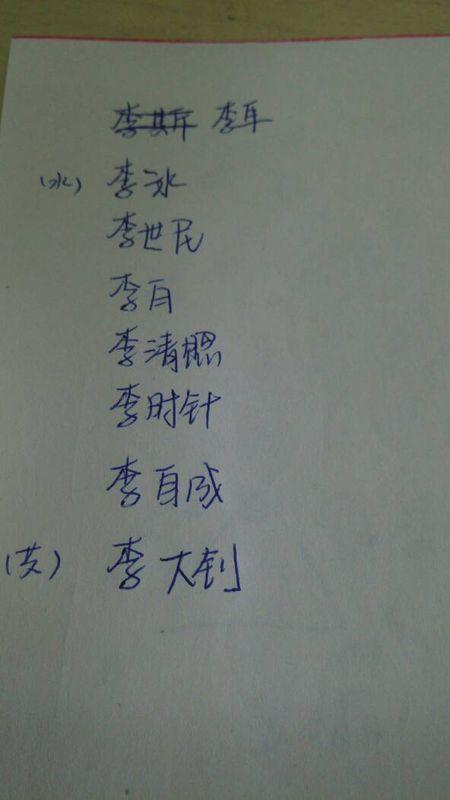 李斯 李耳
(水) 李冰
李世民
李白
李清照
李时针
李自成
李大钊